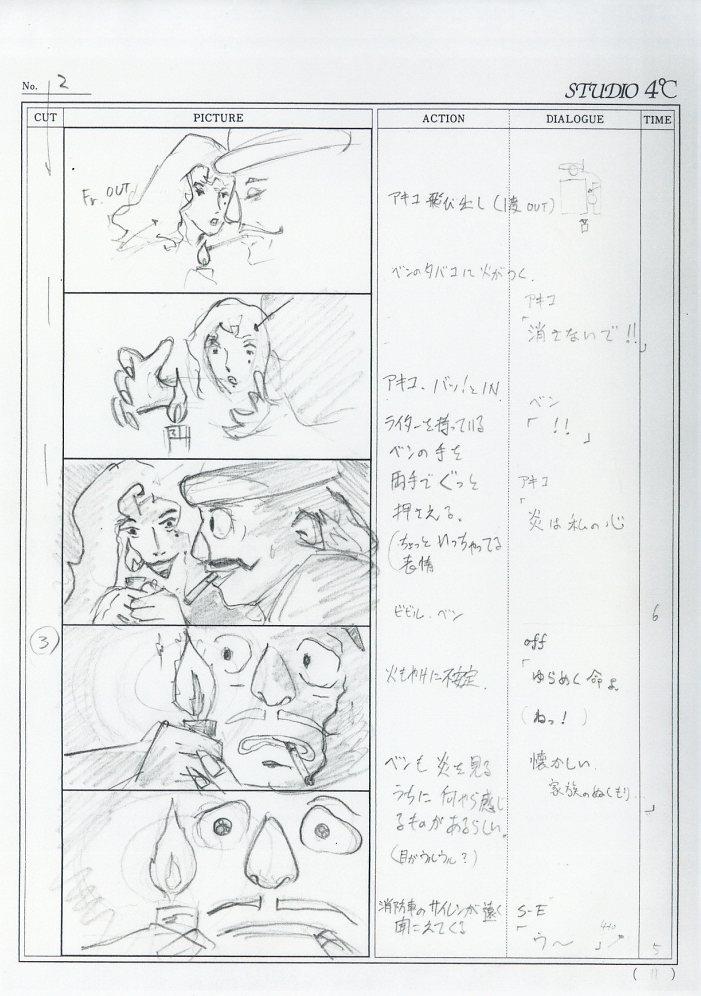 No. 2
STUDIO 4°C
CUT PICTURE ACTION DIALOGUE TIME
Fr. OUT
アキコ 飛び出し (1度 OUT)
ベンのタバコに火がつく.
アキコ
「消さないで!!」
アキコ、バッ!とIN
ライターを持っている
ベンの手を
両手でぐっと
押さえる.
(ちょっといっちゃってる
表情
ベン
「!!」
アキコ
「炎は私の心
ビビル.ベン
6
3
火もやけに不安定.
off
「ゆらめく命よ
(ねっ!)
ベンも炎を見る
うちに何やら感じ
るものがあるらしい.
(目がウルウル?)
懐かしい
家族のぬくもり...」
消防車のサイレンが遠く
聞こえてくる
S-E
「ウ〜」
5
(11)